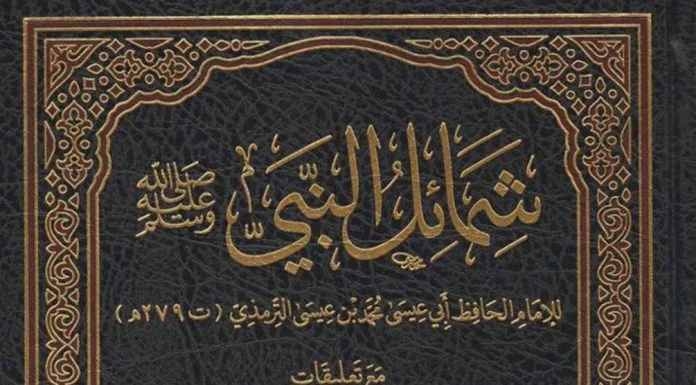 شَمَائِلُ النَّبِيِّ صَلَّى اللّٰهُ عَلَيْهِ وَسَلَّمَ
لِلإِمَامِ الحَافِظِ أَبِي عِيسَىٰ مُحَمَّد بْن عِيسَىٰ التِّرمذِيّ (ت ٢٧٩ هـ)
مَعَ تَعلِيقَات